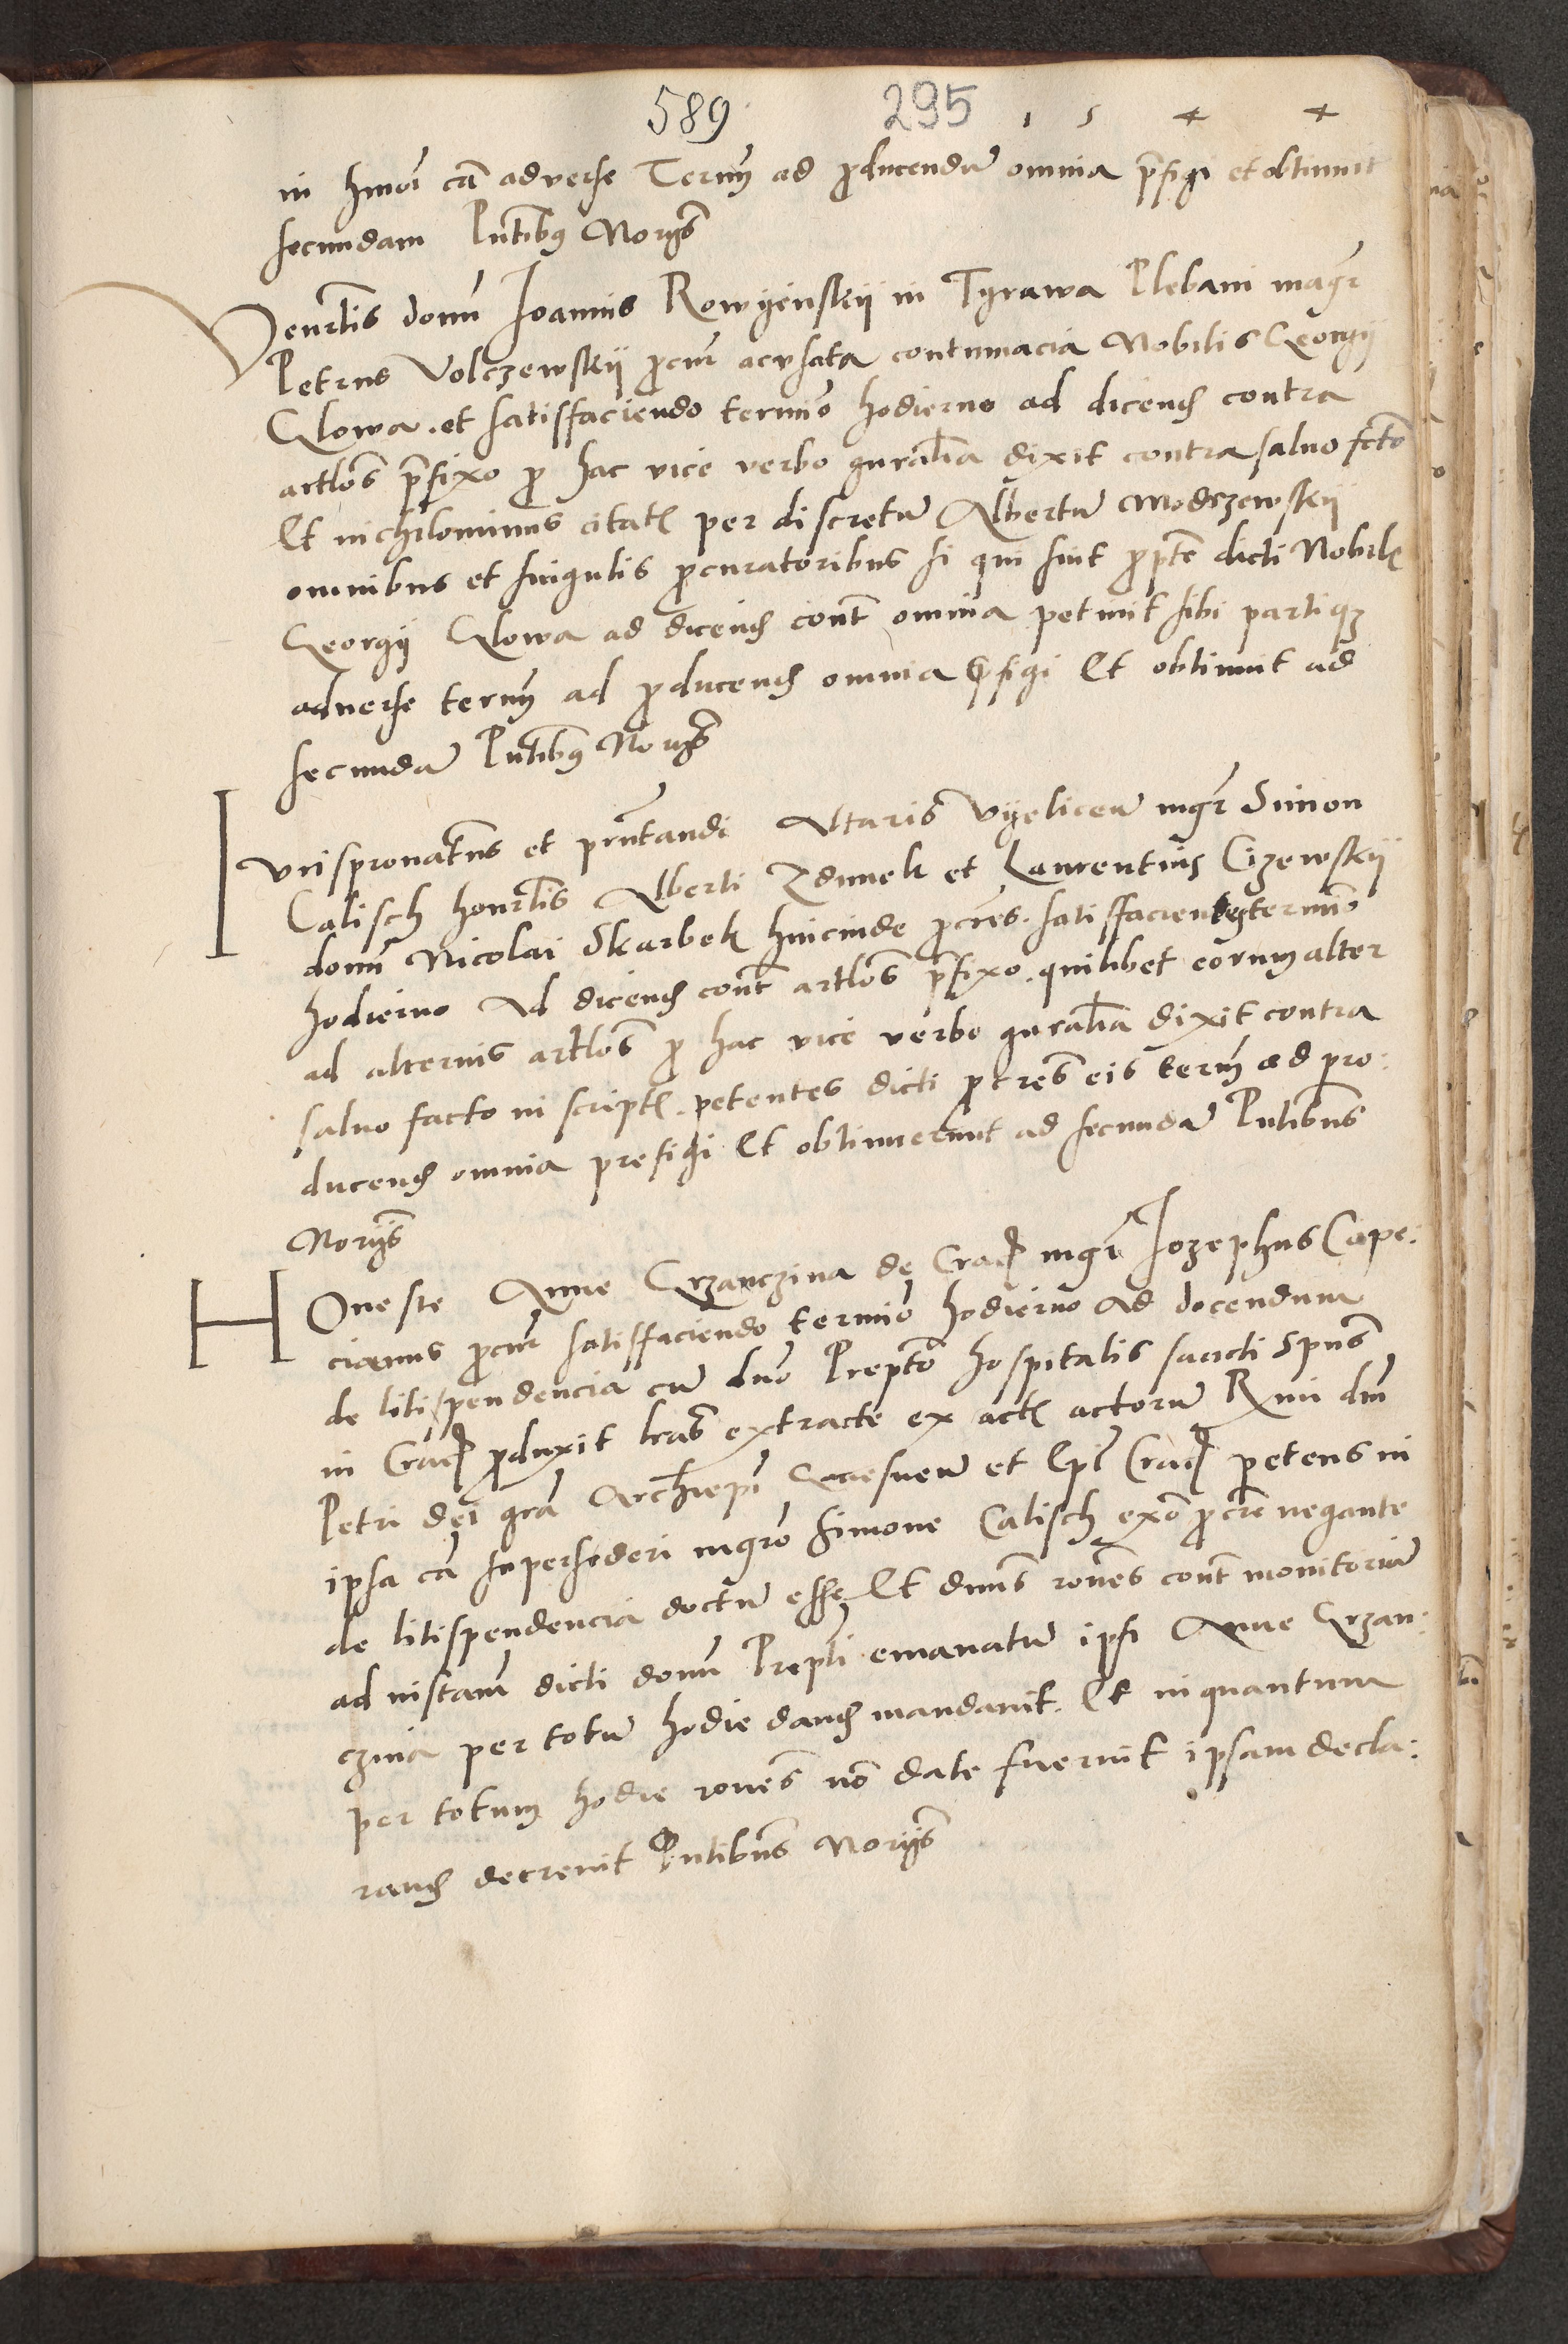 589 295 1 5 4 4
in hmoi cā adverse Termū ad ꝓducendū omnia p̄figi et obtinuit
secundam Pn̄tibꝰ Norijs
Venerlis domī Joannis Rowyenskij in Tyrawa Plebani magr̄
Petrus Volczewskij ꝓcur̄ acusata contumacia Nobilis Georgij
Glowa. et satisfaciendo termīo hodierno ad dicend contra
artlos p̄fixo ꝓ hac vice verbo gnralia dixit contra salvo fcto
Et nichilominus citatis per discretū Albertū Modrzewskij
omnibus et singulis ꝓcuratoribus si qui sint ꝓ p̄te dicti Nobilis
Georgij Glowa ad dicend cont omnia petivit sibi partiqꝫ
adverse termū ad ꝓducend omnia p̄figi Et obtinuit ad
secundā Pn̄tibꝰ Norijs
Iurispronatus et pn̄tandi Altaris Vyelicen mgr̄ Simon
Calisch honrlis Alberti Zdunek et Laurentius Cizewskij
domī Nicolai Skarbek hincinde ꝓcres. satisfacientes termīo
hodierno Ad dicend cont artlos p̄fixo. quilibet eorum alter
ad alterius artlos ꝓ hac vice verbo gnralia dixit contra
salvo facto in scriptis. petentes dicti ꝓcres eis termū ad pro:
ducend omnia prefigi Et obtinuerunt ad secundā Pn̄tibus
Norijs
Honeste Anne Grzanczina de Crac mgr̄ Jozephus Cape:
cianus ꝓcur̄ satisfaciendo termīo hodierno Ad docendum
de litispendencia cū dno Prepto hospitalis sancti Spūs
in Crac ꝓduxit lras extracte ex actis actorū Rmi dni
Petri dei gra Archiepi Gnesnen et Epi Crac petens in
ipsa cā supersederi mgro Simone Calisch exo ꝓcre negante
de litispendencia doctū esse Et dnus rones cont monitoriū
ad instam dicti domī Prepti emanatū ipsi Anne Grzan:
czina per totū hodie dand mandavit. Et in quantum
per totum hodie rones nō date fuerint ipsam decla:
rand decrevit Pn̄tibus Norijs